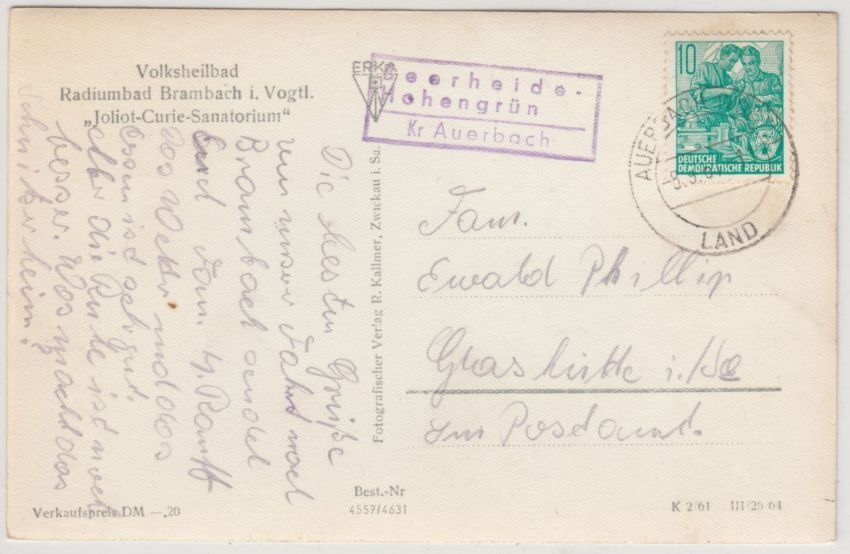 Volksheilbad
Radiumbad Brambach i. Vogtl.
„Joliot-Curie-Sanatorium“
ERKA
Beerheide-
Hohengrün
Kr Auerbach
10
DEUTSCHE
DEMOKRATISCHE REPUBLIK
AUERBACH
LAND
Die besten Grüße
von unser Fahrt nach
Brambach sendet
Euch Fam. H. Ranft
Das Wetter und das
Essen ist sehr gut.
aber die Ruhe ist noch
besser. Was macht das
Schnitzerheim?
Fam.
Ewald Phillip
Glashütte i./Sa
Im Postamt.
Fotografischer Verlag R. Kallmer, Zwickau i. Sa.
Verkaufspreis DM —,20
Best.-Nr
4557/4631
K 2/61 III/26 64